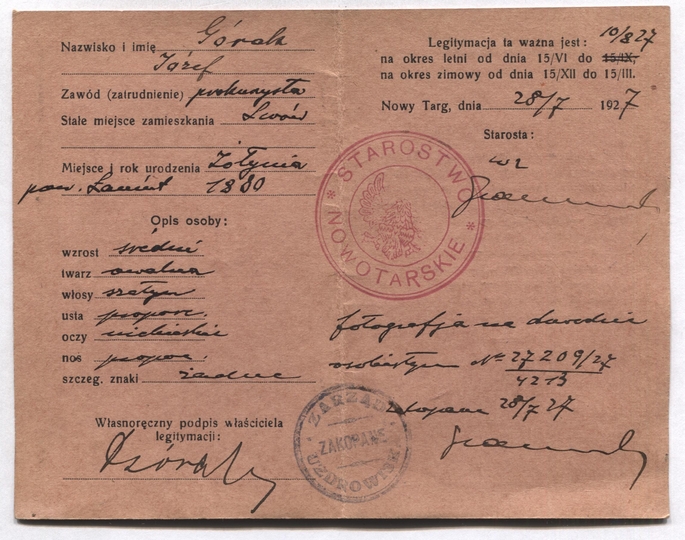 Nazwisko i imię Góralk
Józef
Zawód (zatrudnienie) prokurysta
Stałe miejsce zamieszkania Lwów
Miejsce i rok urodzenia Żołynia
pow. Łańcut 1880
Opis osoby:
wzrost średni
twarz owalna
włosy szatyn
usta propor.
oczy niebieskie
nos propor.
szczeg. znaki żadne
Własnoręczny podpis właściciela
legitymacji:
10/8 27
Legitymacja ta ważna jest:
na okres letni od dnia 15/VI do 15/IX,
na okres zimowy od dnia 15/XII do 15/III.
Nowy Targ, dnia 28/7 1927
Starosta:
wz
* STAROSTWO *
NOWOTARSKIE
fotografja na dowodzie
osobistym Nr 27209/27
4213
Zakopane 28/7 27
ZARZĄD
ZAKOPANE
UZDROWISKA